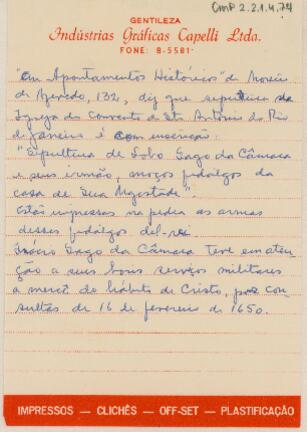 CMP 2.2.1.4.74
GENTILEZA
Indústrias Gráficas Capelli Ltda.
FONE: 8-5581
"Em Apontamentos Históricos" de Moreira
de Azevedo, 132, diz que sepultura da
Igreja do Convento de Sto. Antônio do Rio
de Janeiro é com inscrição:
"Sepultura de Lobo Gago da Câmara
e seus irmãos, moços fidalgos da
casa de Sua Magestade".
Estão impressas na pedra as armas
desses fidalgos del-rei.
Inácio Gago da Câmara teve em aten-
ção a seus bons serviços militares
a mercê do hábito de Cristo, por con-
sultas de 16 de fevereiro de 1650.
IMPRESSOS — CLICHÊS — OFF-SET — PLASTIFICAÇÃO